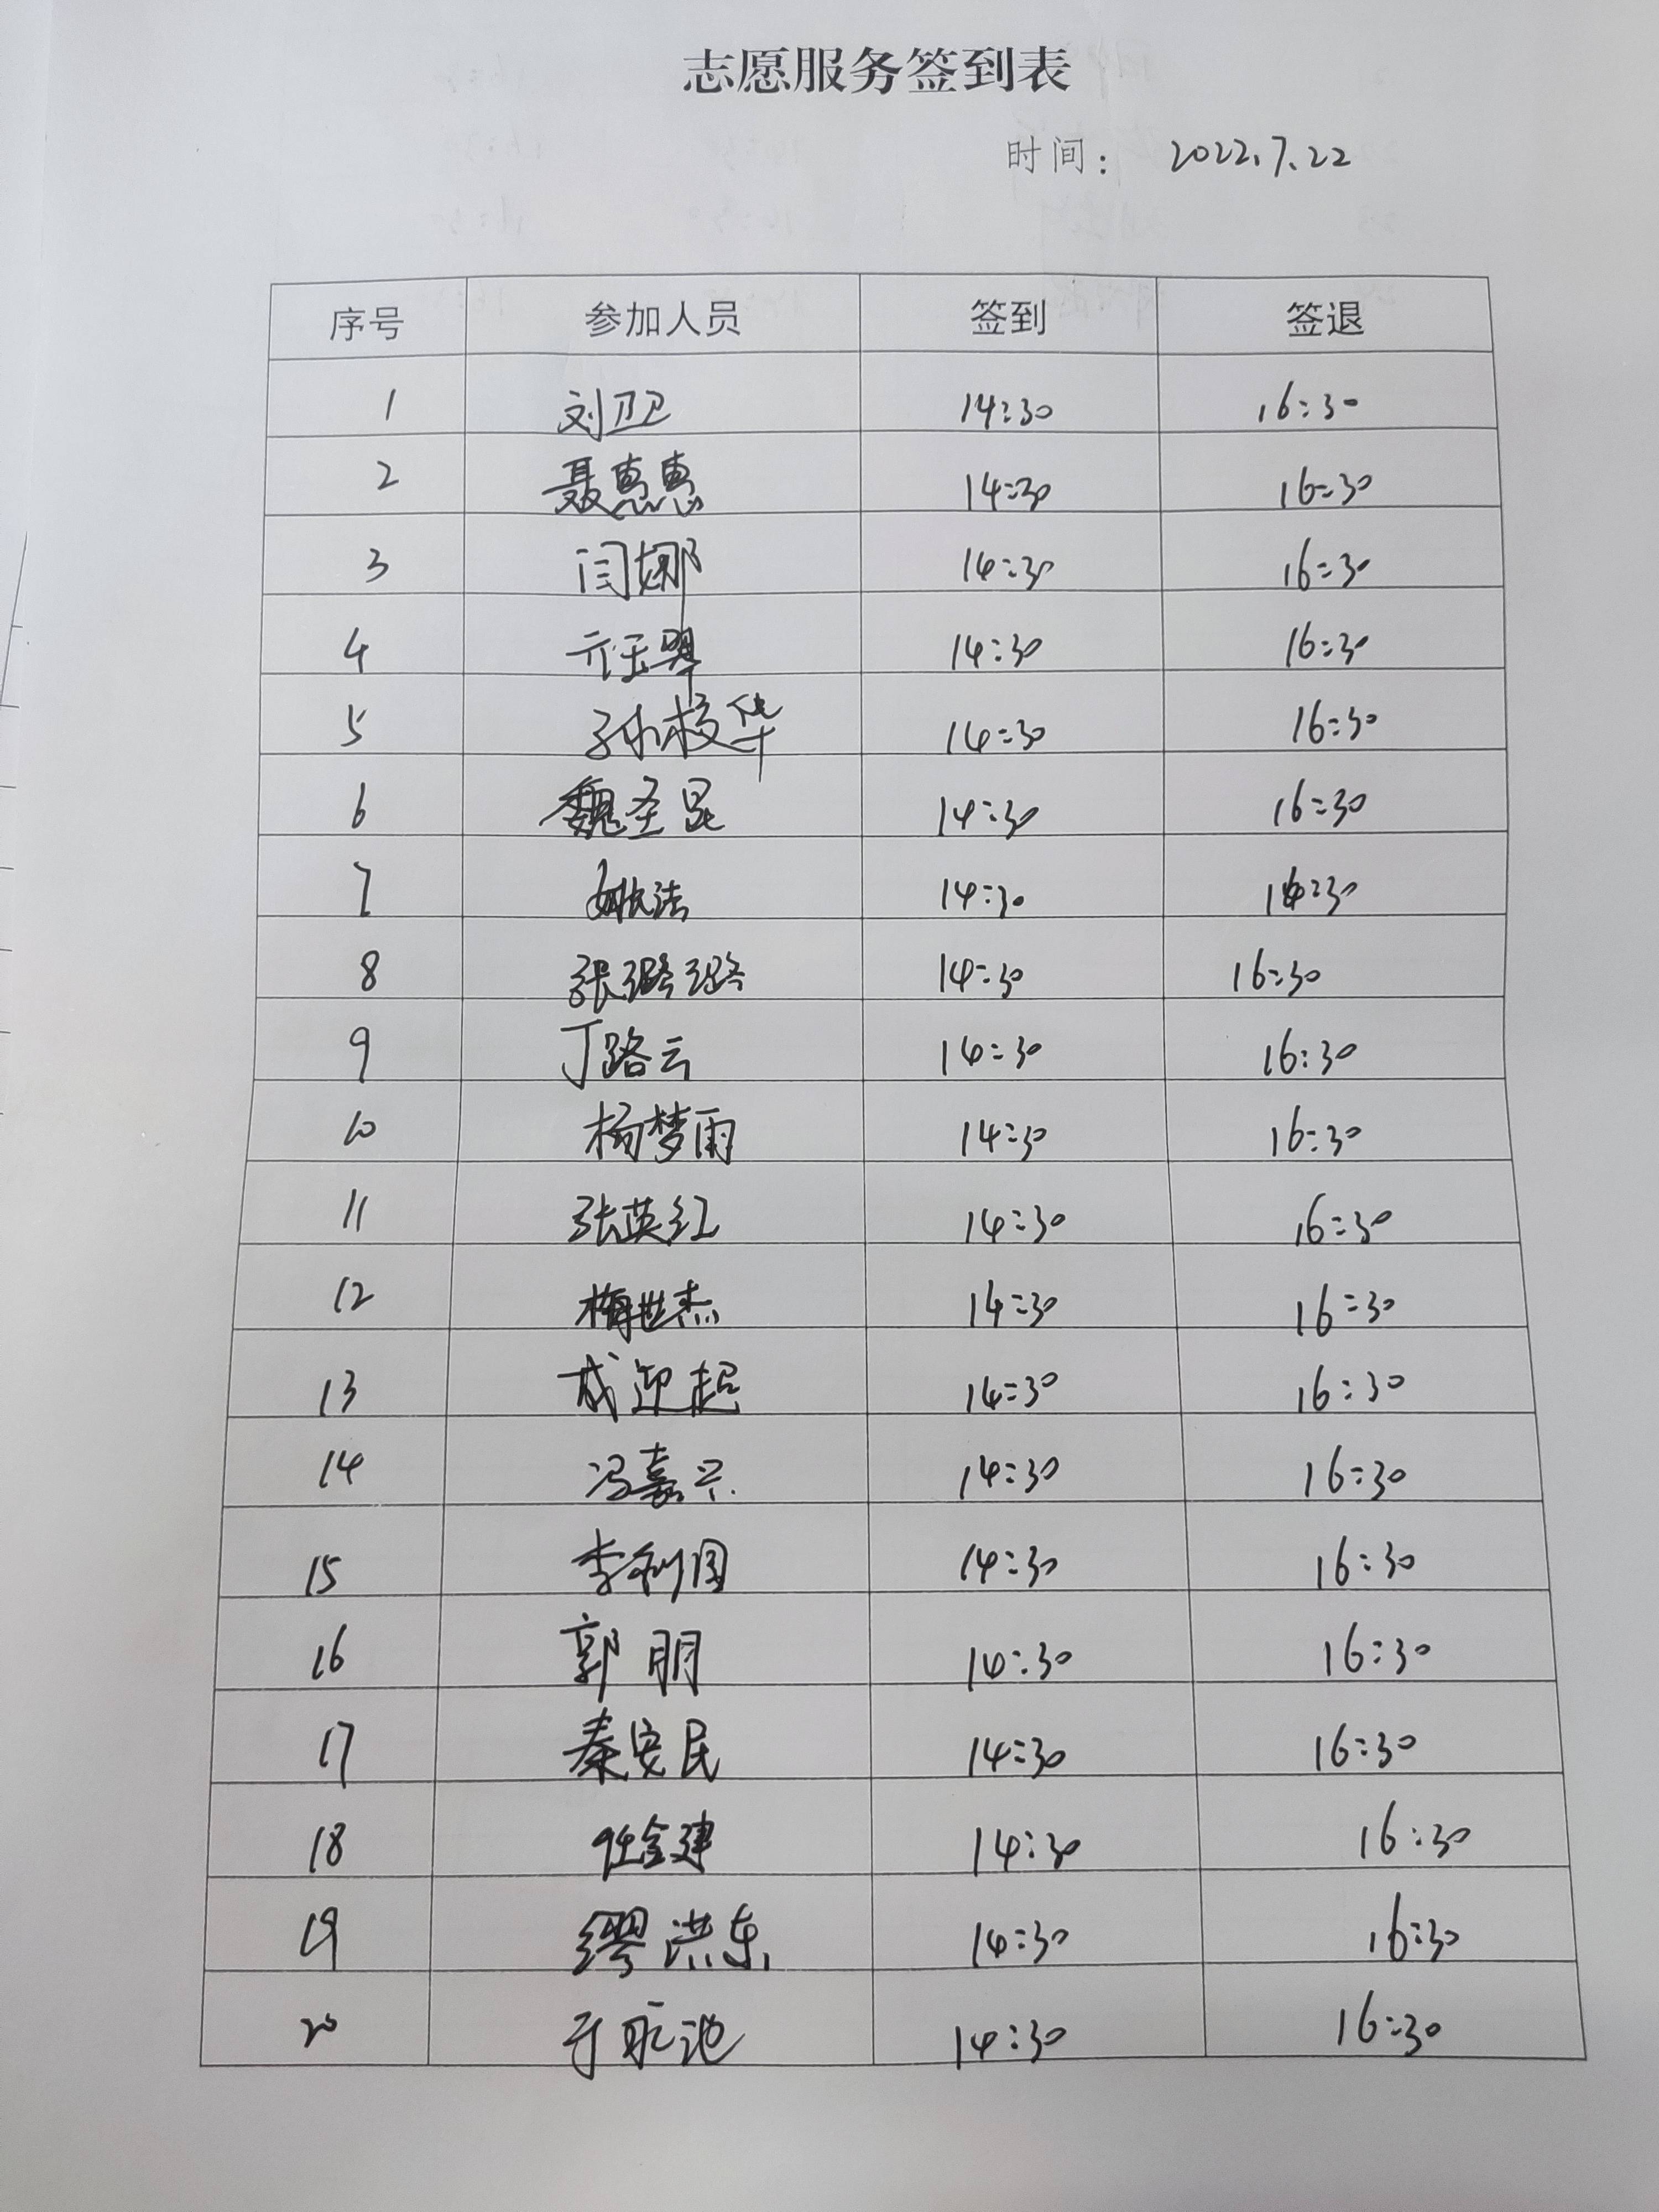 志愿服务签到表
时间： 2022.7.22
序号 参加人员 签到 签退
1 刘卫卫 14:30 16:30
2 聂惠惠 14:30 16:30
3 闫娜 14:30 16:30
4 亓玉翠 14:30 16:30
5 孙校华 14:30 16:30
6 魏圣昆 14:30 16:30
7 14:30 16:30
8 张璐璐 14:30 16:30
9 丁路云 14:30 16:30
10 杨梦雨 14:30 16:30
11 张英红 14:30 16:30
12 梅世杰 14:30 16:30
13 成迎起 14:30 16:30
14 冯嘉兴 14:30 16:30
15 李利国 14:30 16:30
16 郭朋 14:30 16:30
17 秦安民 14:30 16:30
18 任金建 14:30 16:30
19 缪洪东 14:30 16:30
20 于永池 14:30 16:30